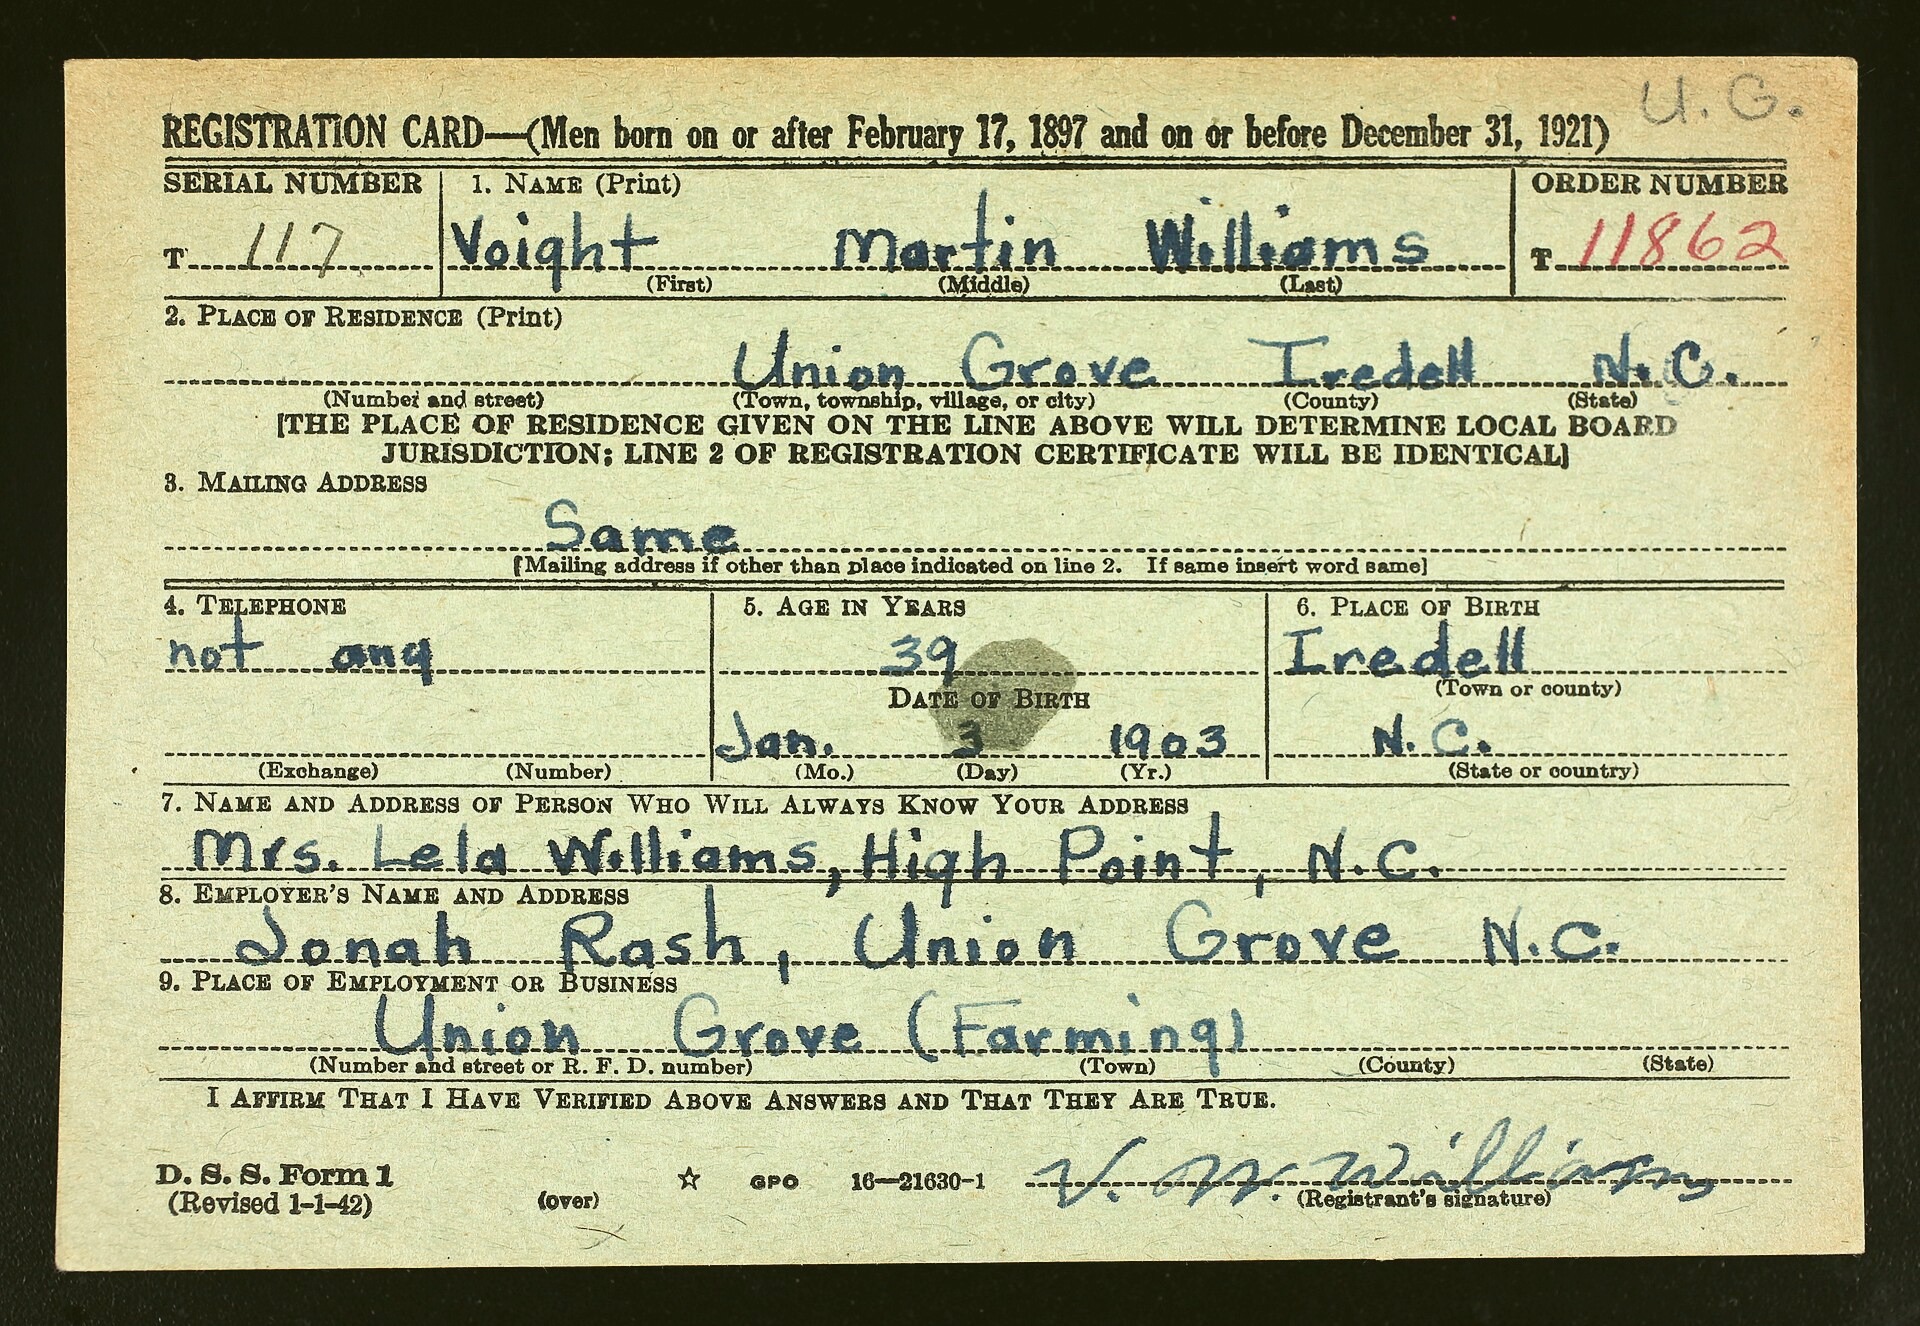 U. G.
REGISTRATION CARD—(Men born on or after February 17, 1897 and on or before December 31, 1921)
SERIAL NUMBER 1. NAME (Print) ORDER NUMBER
T 117 Voight Martin Williams T 11862
(First) (Middle) (Last)
2. PLACE OF RESIDENCE (Print)
Union Grove Iredell N.C.
(Number and street) (Town, township, village, or city) (County) (State)
[THE PLACE OF RESIDENCE GIVEN ON THE LINE ABOVE WILL DETERMINE LOCAL BOARD
JURISDICTION; LINE 2 OF REGISTRATION CERTIFICATE WILL BE IDENTICAL]
3. MAILING ADDRESS
Same
[Mailing address if other than place indicated on line 2. If same insert word same]
4. TELEPHONE 5. AGE IN YEARS 6. PLACE OF BIRTH
not any 39 Iredell
DATE OF BIRTH (Town or county)
Jan. 3 1903 N.C.
(Exchange) (Number) (Mo.) (Day) (Yr.) (State or country)
7. NAME AND ADDRESS OF PERSON WHO WILL ALWAYS KNOW YOUR ADDRESS
Mrs. Lela Williams, High Point, N.C.
8. EMPLOYER'S NAME AND ADDRESS
Jonah Rash, Union Grove N.C.
9. PLACE OF EMPLOYMENT OR BUSINESS
Union Grove (Farming)
(Number and street or R. F. D. number) (Town) (County) (State)
I AFFIRM THAT I HAVE VERIFIED ABOVE ANSWERS AND THAT THEY ARE TRUE.
D. S. S. Form 1 ☆ GPO 16—21630-1 V. M. Williams
(Revised 1-1-42) (over) (Registrant's signature)